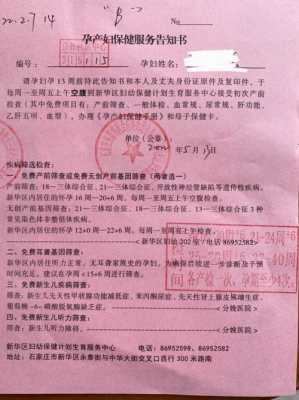 22.2.7 14 "B" No
孕产妇保健服务告知书
编号： 215115 孕妇姓名：
请孕妇孕 13 周前持此告知书和本人及丈夫身份证原件及复印件，于
每周一至周五上午空腹到新华区妇幼保健计划生育服务中心接受初次产前
检查（其中免费项目有：产前筛查、一般体检、血常规、尿常规、肝功能、
乙肝五项、血型），办理《孕产妇保健手册》和母子保健卡。
单位（公章）
2022年 5 月 13日
疾病筛选检查：
一、免费产前筛查或免费无创产前基因筛查（两者选一）
产前筛查：18－三体综合征、21－三体综合征、开放性神经管缺陷等遗传性疾病。
新华区内居住的怀孕 16 周～20+6 周，每周一至周五上午空腹检查。
无创产前基因筛查：21－三体综合征、18－三体综合征、13－三体综合征 3 种
常见染色体非整倍体疾病。
新华区内居住的怀孕 12+0 周～22+6 周，每周一至周五上午检查。
＜新华区妇幼 202 室／电话 86952582＞
二、免费耳聋基因筛查：
新华区内居住听力正常、无耳聋家族史的孕妇，为确保后续进一步诊断及干预
时间充足，建议在孕周≤15+6 周进行筛查。
三、免费新生儿疾病筛查：
筛查：新生儿先天性甲状腺功能减低症、苯丙酮尿症、先天性肾上腺皮质增生症、
葡萄糖－6－磷酸脱氢酶缺乏症。 ＜分娩医院＞
四、免费新生儿听力筛查：
筛查：新生儿听力障碍。 ＜分娩医院＞
新华区妇幼保健计划生育服务中心 电话：86952598、86952582
地址：石家庄市新华区永泰街与中华大街交叉口西行 300 米路南